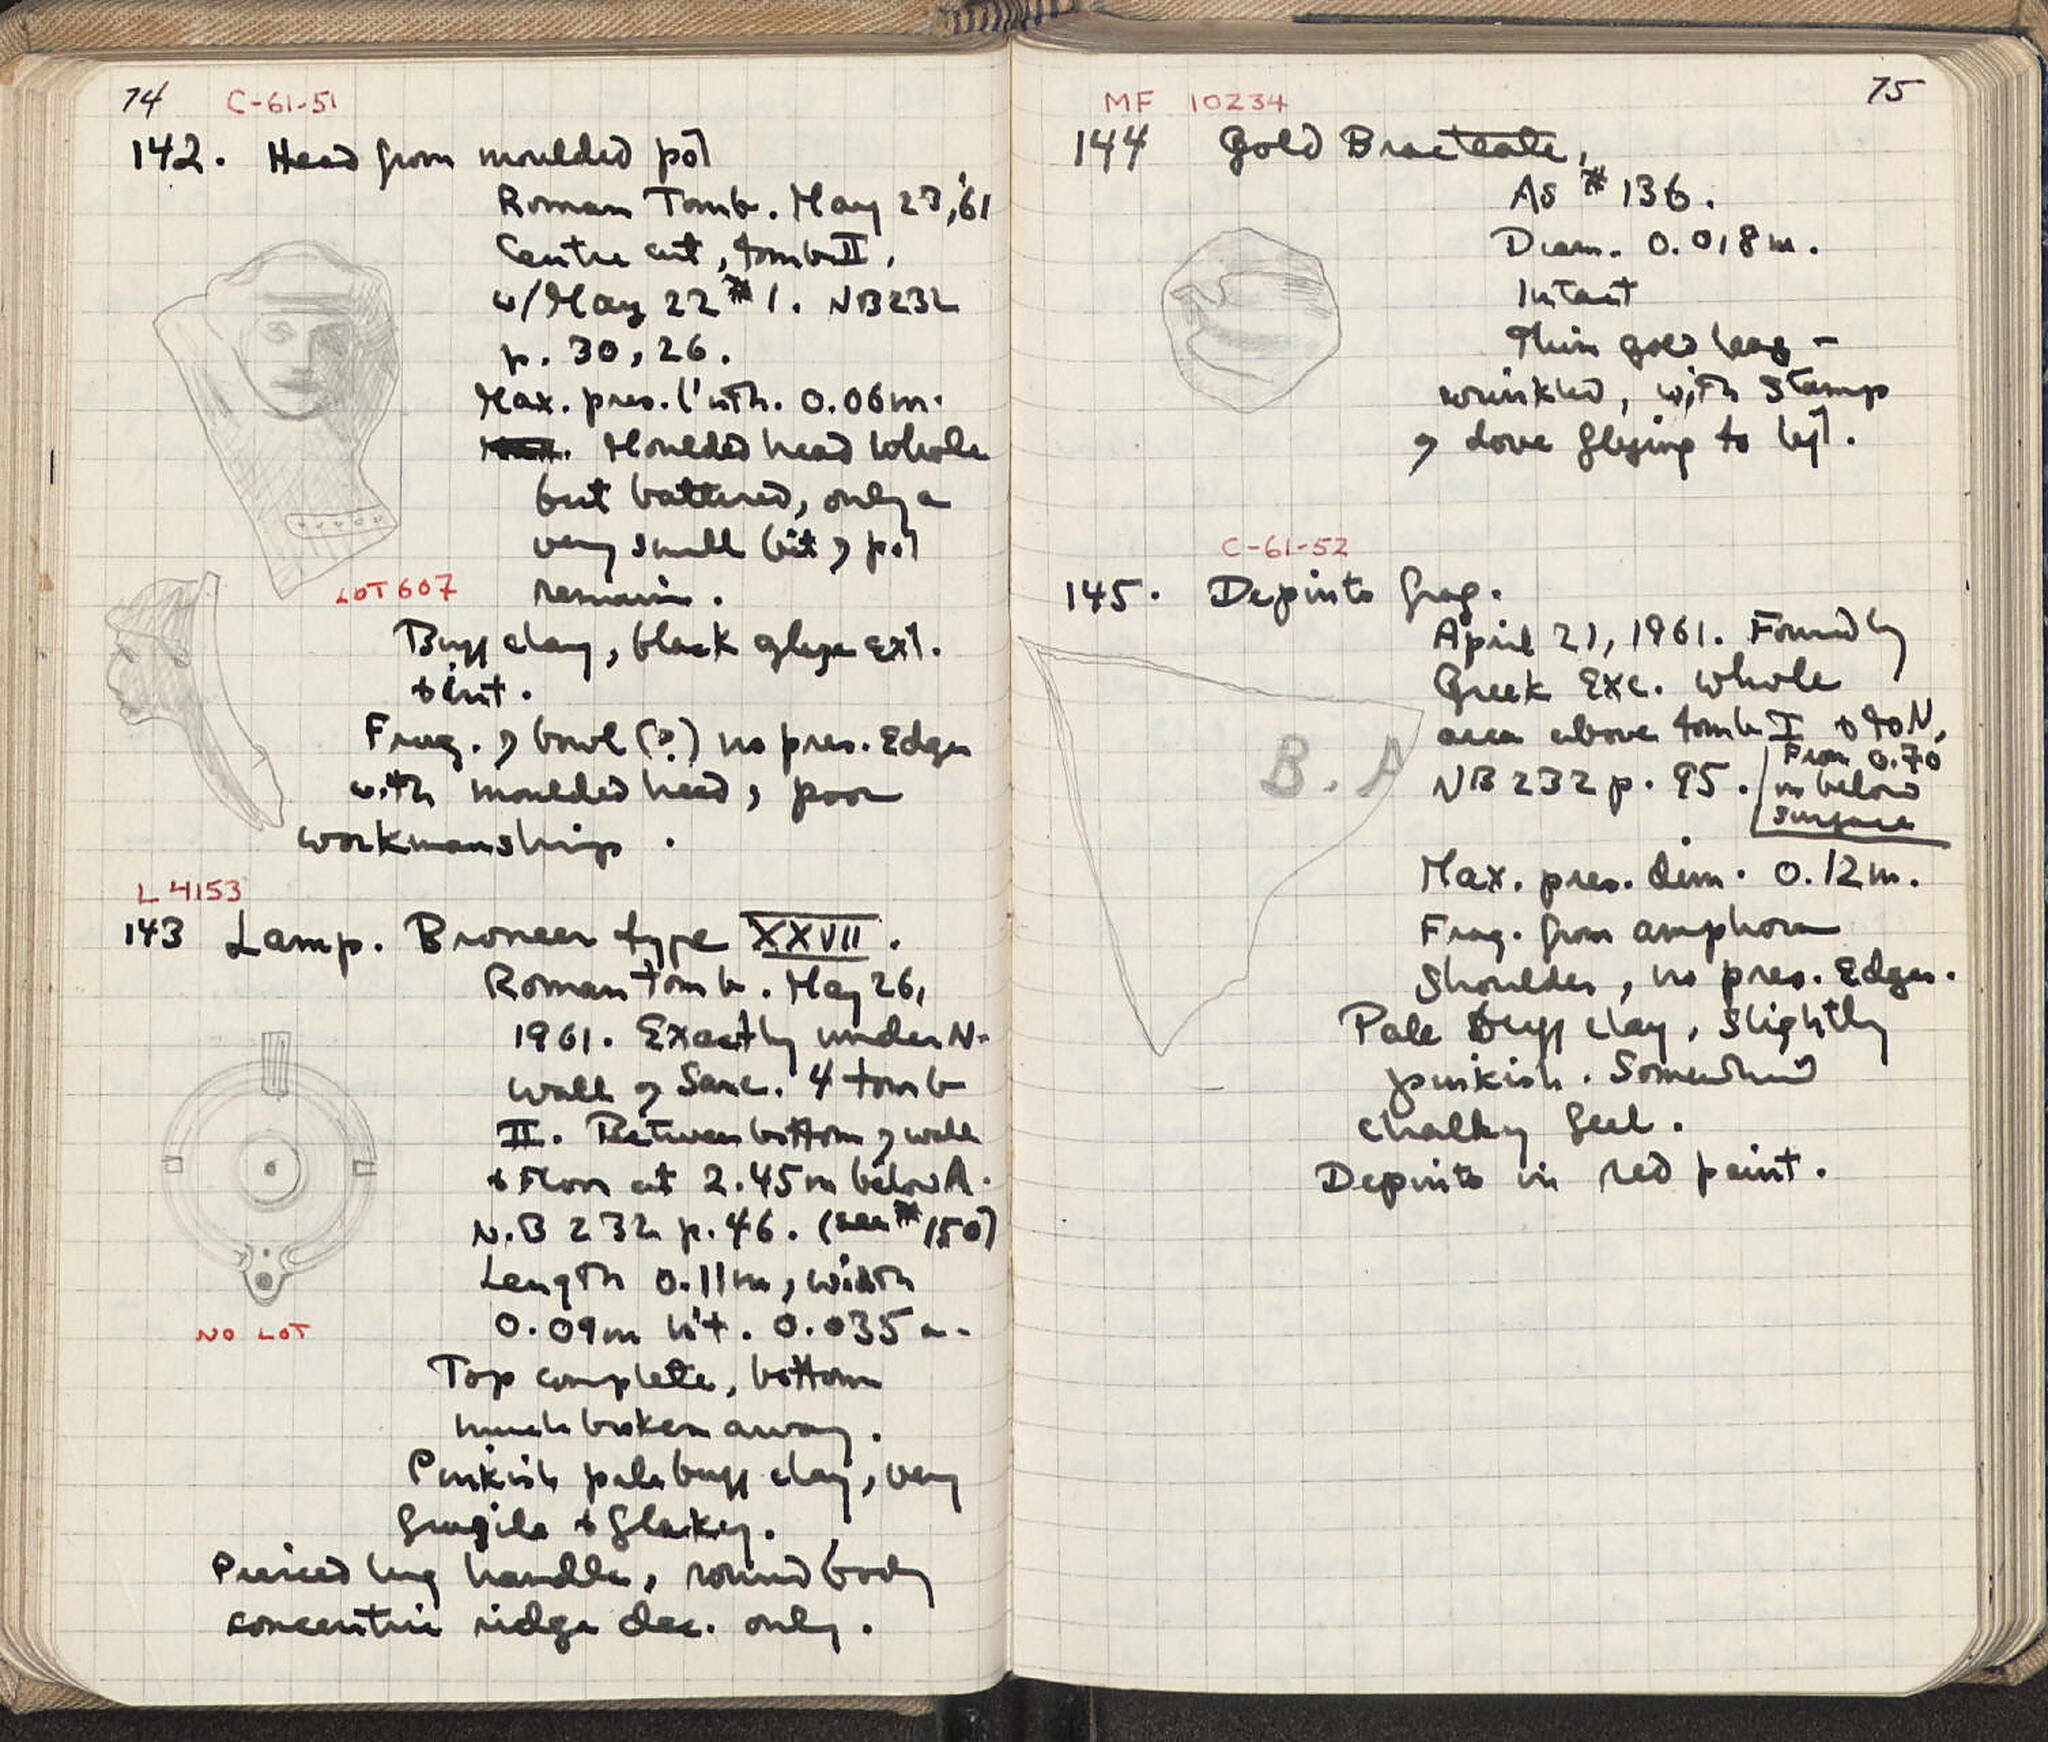 74 C-61-51
142. Head from moulded pot
Roman Tomb. May 23, '61
Centre cut, tomb II,
w/ May 22 # 1. NB 232
p. 30, 26.
Max. pres. l'nth. 0.06m.
Moulded head whole
but battered, only a
very small bit of pot
remains.
LOT 607
Buff clay, black glaze ext.
& int.
Frag. of bowl (?) no pres. Edges
with moulded head, poor
workmanship.
L 4153
143 Lamp. Broneer type XXVII.
Roman tomb. May 26,
1961. Exactly under N.
wall of Sarc. 4 tomb
II. Between bottom of wall
& Floor at 2.45m below A.
N.B 232 p. 46. (see # 150)
Length 0.11m, width
0.09m h't. 0.035 m.
NO LOT
Top complete, bottom
much broken away.
Pinkish pale buff clay, very
fragile & flakey.
Pierced lug handle, round body
concentric ridge dec. only.
75
MF 10234
144 Gold Bracteate,
As # 136.
Diam. 0.018m.
Intact
Thin gold leaf –
wrinkled, with stamp
of dove flying to left.
C-61-52
145. Depinto frag.
April 21, 1961. Found by
Greek Exc. whole
area above tomb I & to N,
NB 232 p. 95. From 0.70
m below
surface
B. A
Max. pres. dim. 0.12m.
Frag. from amphora
shoulder, no pres. Edges.
Pale Buff clay, slightly
pinkish. Somewhat
chalky feel.
Depinto in red paint.